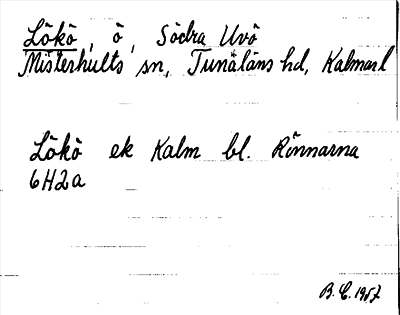 Lökö, ö, Södra Uvö
Misterhults sn, Tunaläns hd, Kalmarl
Lökö ek Kalm bl. Rönnarna
6H2a
B.C. 1957